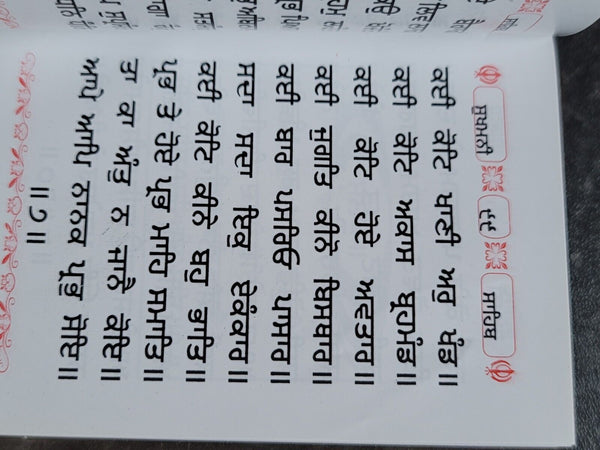 ਸੁਖਮਨੀ ਸਾਹਿਬ
ਕਈ ਕੋਟਿ ਖਾਣੀ ਅਰੁ ਖੰਡ ॥
ਕਈ ਕੋਟਿ ਅਕਾਸ ਬ੍ਰਹਮੰਡ ॥
ਕਈ ਕੋਟਿ ਹੋਏ ਅਵਤਾਰ ॥
ਕਈ ਜੁਗਤਿ ਕੀਨੋ ਬਿਸਥਾਰ ॥
ਕਈ ਬਾਰ ਪਸਰਿਓ ਪਾਸਾਰ ॥
ਸਦਾ ਸਦਾ ਇਕੁ ਏਕੰਕਾਰ ॥
ਕਈ ਕੋਟਿ ਕੀਨੇ ਬਹੁ ਭਾਤਿ ॥
ਪ੍ਰਭ ਤੇ ਹੋਏ ਪ੍ਰਭ ਮਾਹਿ ਸਮਾਤਿ ॥
ਤਾ ਕਾ ਅੰਤੁ ਨ ਜਾਨੈ ਕੋਇ ॥
ਆਪੇ ਆਪਿ ਨਾਨਕ ਪ੍ਰਭੁ ਸੋਇ ॥
॥੭॥